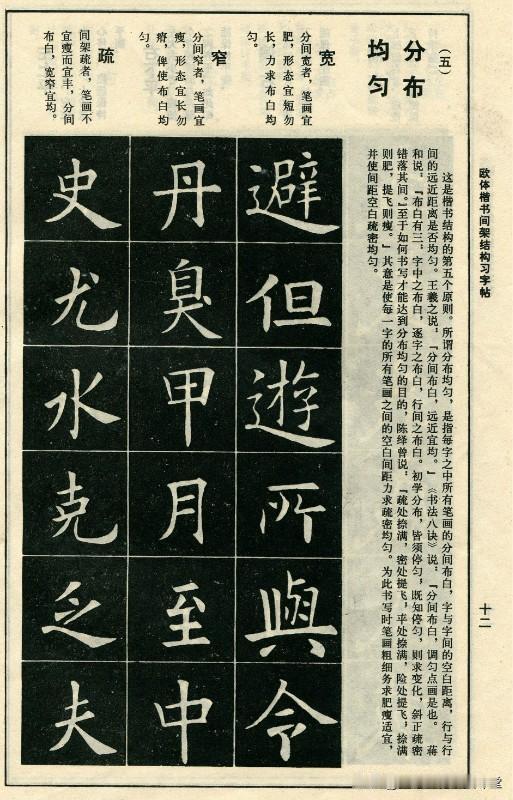 欧体楷书间架结构习字帖
十二
（五）
分布
均匀
这是楷书结构的第五个原则。所谓分布均匀，是指每字之中所有笔画的分间布白，字与字间的空白距离，行与行
间的远近距离是否均匀。王羲之说：「分间布白，远近宜均。」《书法八诀》说：「分间布白，调匀点画是也。 蒋
和说：「布白有三：字中之布白，逐字之布白，行间之布白。初学分布，皆须停匀，既知停匀，则求变化，斜正疏密
错落其间。」至于如何书写才能达到分布均匀的目的，陈绎曾说：「疏处捺满，密处提飞，平处捺满，险处提飞，捺满
则肥，提飞则瘦。」其意是使每一字的所有笔画之间的空白间距力求疏密均匀。为此书写时笔画粗细务求肥瘦适宜，
并使间距空白疏密均匀。
宽
分间宽者，笔画宜
肥，形态宜短勿
长，力求布白均
匀。
避但遊所與令
窄
分间窄者，笔画宜
瘦，形态宜长勿
瘠，俾使布白均
匀。
丹臭甲月至中
疏
间架疏者，笔画不
宜瘦而宜丰，分间
布白，宽窄宜均。
史尤水克乏夫